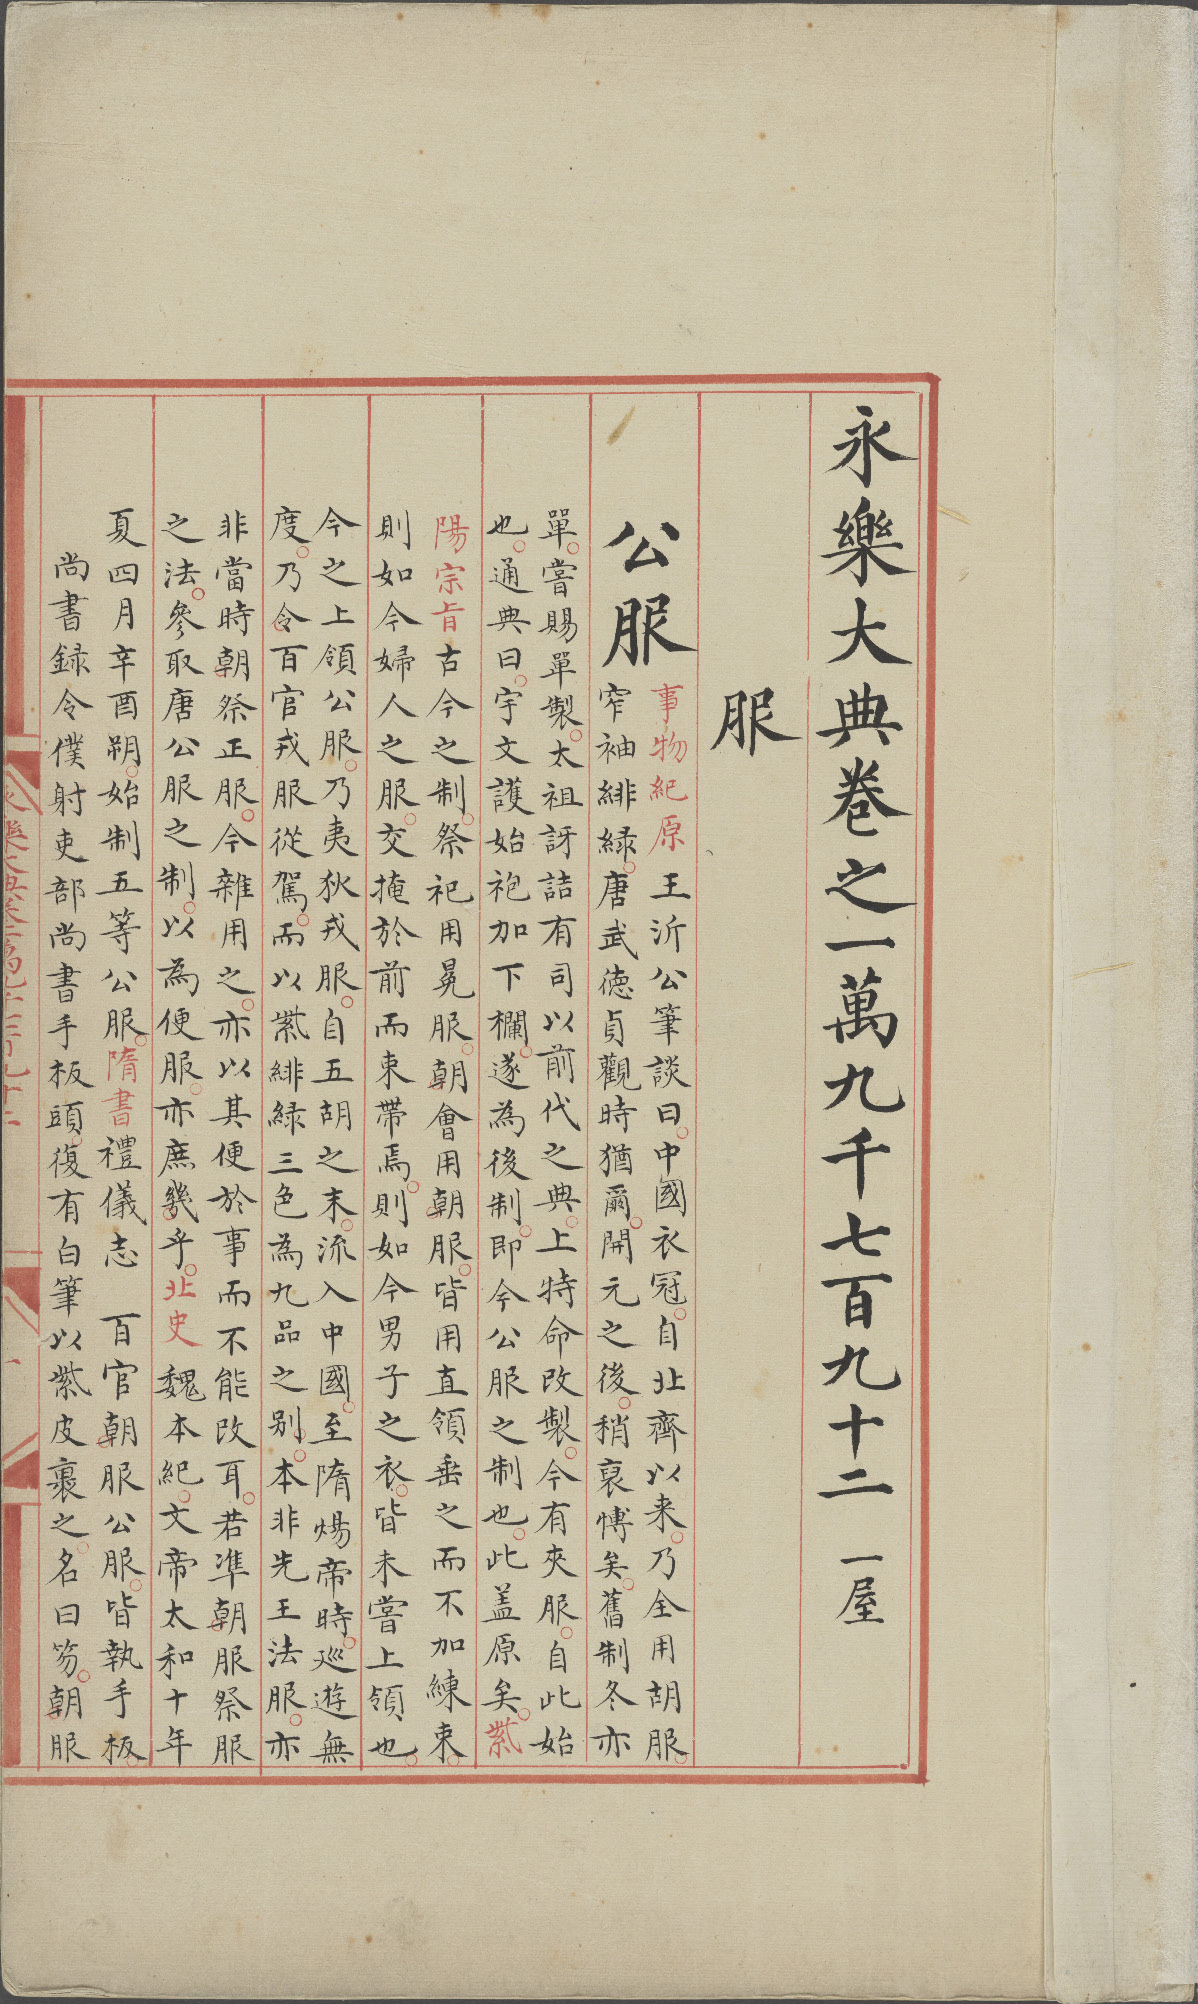 永樂大典卷之一萬九千七百九十二 一屋
服
公服
事物紀原王沂公筆談曰中國衣冠自北齊以来乃全用胡服
窄袖緋緑唐武德貞觀時猶爾開元之後稍裒愽矣舊制冬亦
單嘗賜單製太祖訝詰有司以前代之典上特命改製今有夾服自此始
也通典曰宇文護始袍加下欄遂為後制即今公服之制也此盖原矣紫
陽宗旨古今之制祭祀用冕服朝會用朝服皆用直領垂之而不加練束
則如今婦人之服交掩於前而束帶焉則如今男子之衣皆未嘗上領也
今之上領公服乃夷狄戎服自五胡之末流入中國至隋煬帝時廵遊無
度乃令百官戎服從駕而以紫緋緑三色為九品之别本非先王法服亦
非當時朝祭正服今雜用之亦以其便於事而不能改耳若準朝服祭服
之法參取唐公服之制以為便服亦庶幾乎北史 魏本紀文帝太和十年
夏四月辛酉朔始制五等公服隋書禮儀志 百官朝服公服皆執手板
尚書録令僕射吏部尚書手板頭復有白筆以紫皮裹之名曰笏朝服